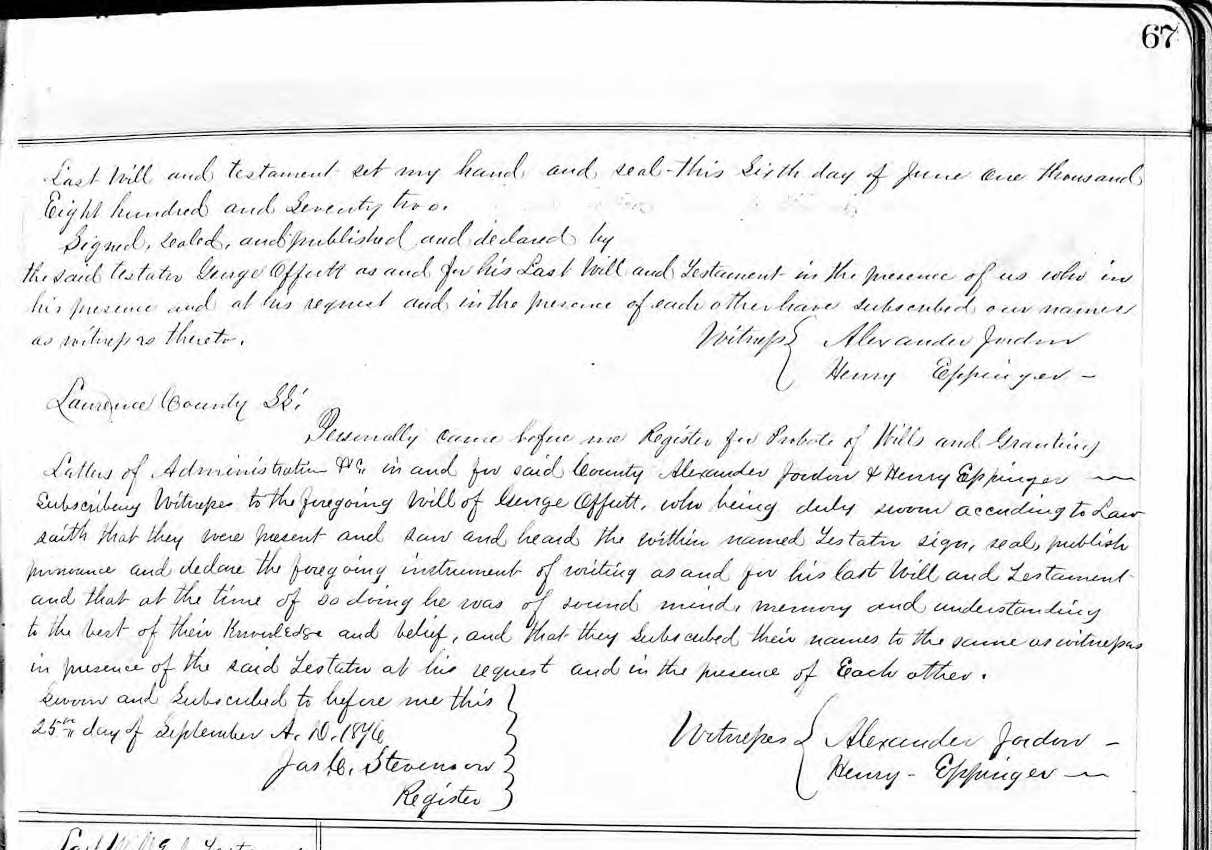 67
Last Will and testament set my hand and seal this Sixth day of June One thousand
Eight hundred and Seventy two.
Signed, sealed, and published and declared by
the said testator George Offutt as and for his Last Will and Testament in the presence of us who in
his presence and at his request and in the presence of each other have subscribed our names
as witnesses thereto.
Witness { Alexander Jordon
Henry Eppinger
Lawrence County SS:
Personally came before me Register for Probate of Wills and Granting
Letters of Administration &c in and for said County Alexander Jordon & Henry Eppinger
Subscribing Witnesses to the foregoing Will of George Offutt, who being duly sworn according to Law
saith that they were present and saw and heard the within named Testator sign, seal, publish
pronounce and declare the foregoing instrument of writing as and for his last Will and Testament
and that at the time of so doing he was of sound mind, memory and understanding
to the best of their Knowledge and belief, and that they Subscribed their names to the same as witnesses
in presence of the said Testator at his request and in the presence of Each other.
Sworn and Subscribed to before me this
25th day of September A. D. 1876
Jas. C. Stevenson
Register
Witnesses { Alexander Jordon
Henry Eppinger
Last Will & Testament